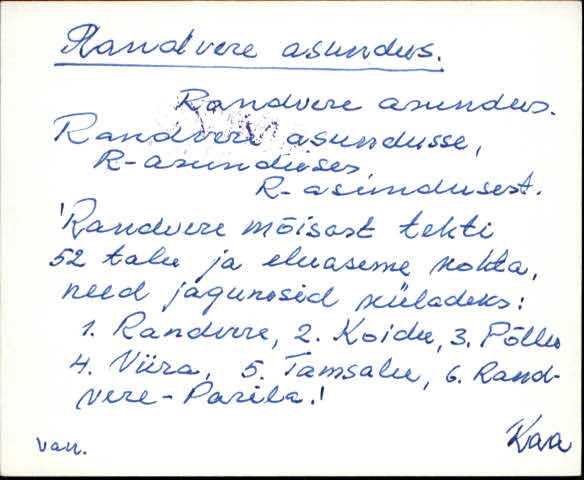 Randvere asundus.
Randvere asundus.
Randvere asundusse,
R-asunduses,
R-asundusest.
'Randvere mõisast tekti
52 talu ja eluaseme kohta,
need jagunesid küladeks:
1. Randvere, 2. Koidu, 3. Põllu
4. Viira, 5. Tamsalu, 6. Rand-
vere-Parila.'
van. Kaa